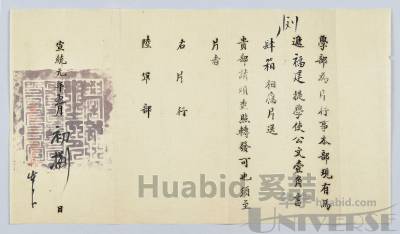 學部為片行事本部現有為
遞福建提學使公文壹角書
肆箱相應片送
貴部請煩查照轉發可也須至
片者
右片行
陸軍部
宣統元年 月初 日
Huabid 奚喆
Huabid
UNIVERSE